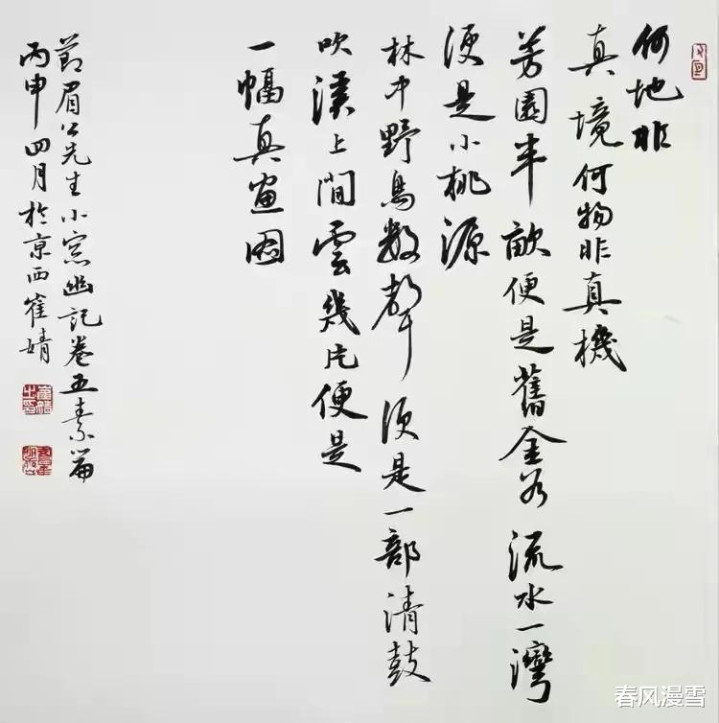 何地非
真境何物非真機
芳園半畝便是舊金谷流水一灣
便是小桃源
林中野鳥數聲便是一部清鼓
吹溪上閒雲幾片便是
一幅真畫圖
節眉公先生小窓幽記卷五素篇
丙申四月於京西崔婧
春风漫雪